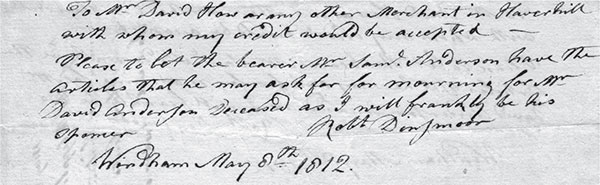 To Mr David How or any other Merchant in Haverhill
with whom my credit would be accepted —
Please to let the bearer Mr Saml. Anderson have the
articles that he may ask for for mourning for Mr
David Anderson Deceased as I will frankly be his
Sponser
Robt Dinsmoor
Windham May 8th 1812.